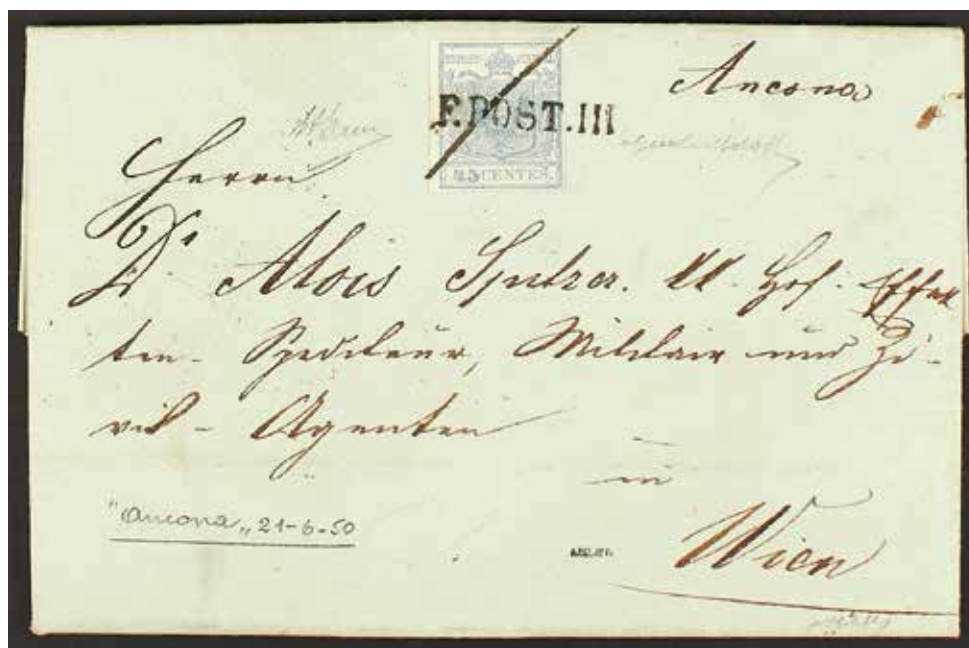 Ancona
F.POST.III
45 CENTES.
Herrn
Dr Alois Spitzer. kk. Hof. Effek
ten- Spediteur, Militair und Zi-
vil- Agenten
in
"Ancona„ 21-6-50
Wien